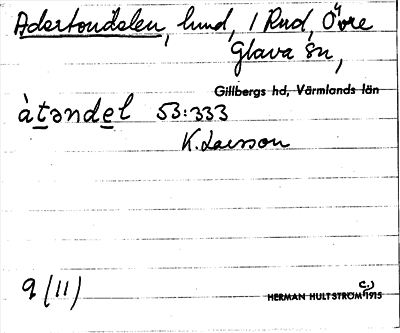 Adertondelen, lund, 1 Rud, Övre
Glava Sn,
Gillbergs hd, Värmlands län
àtəndel 53:333
K. Larsson
9 (11)
HERMAN HULTSTRÖM (C.) 1915